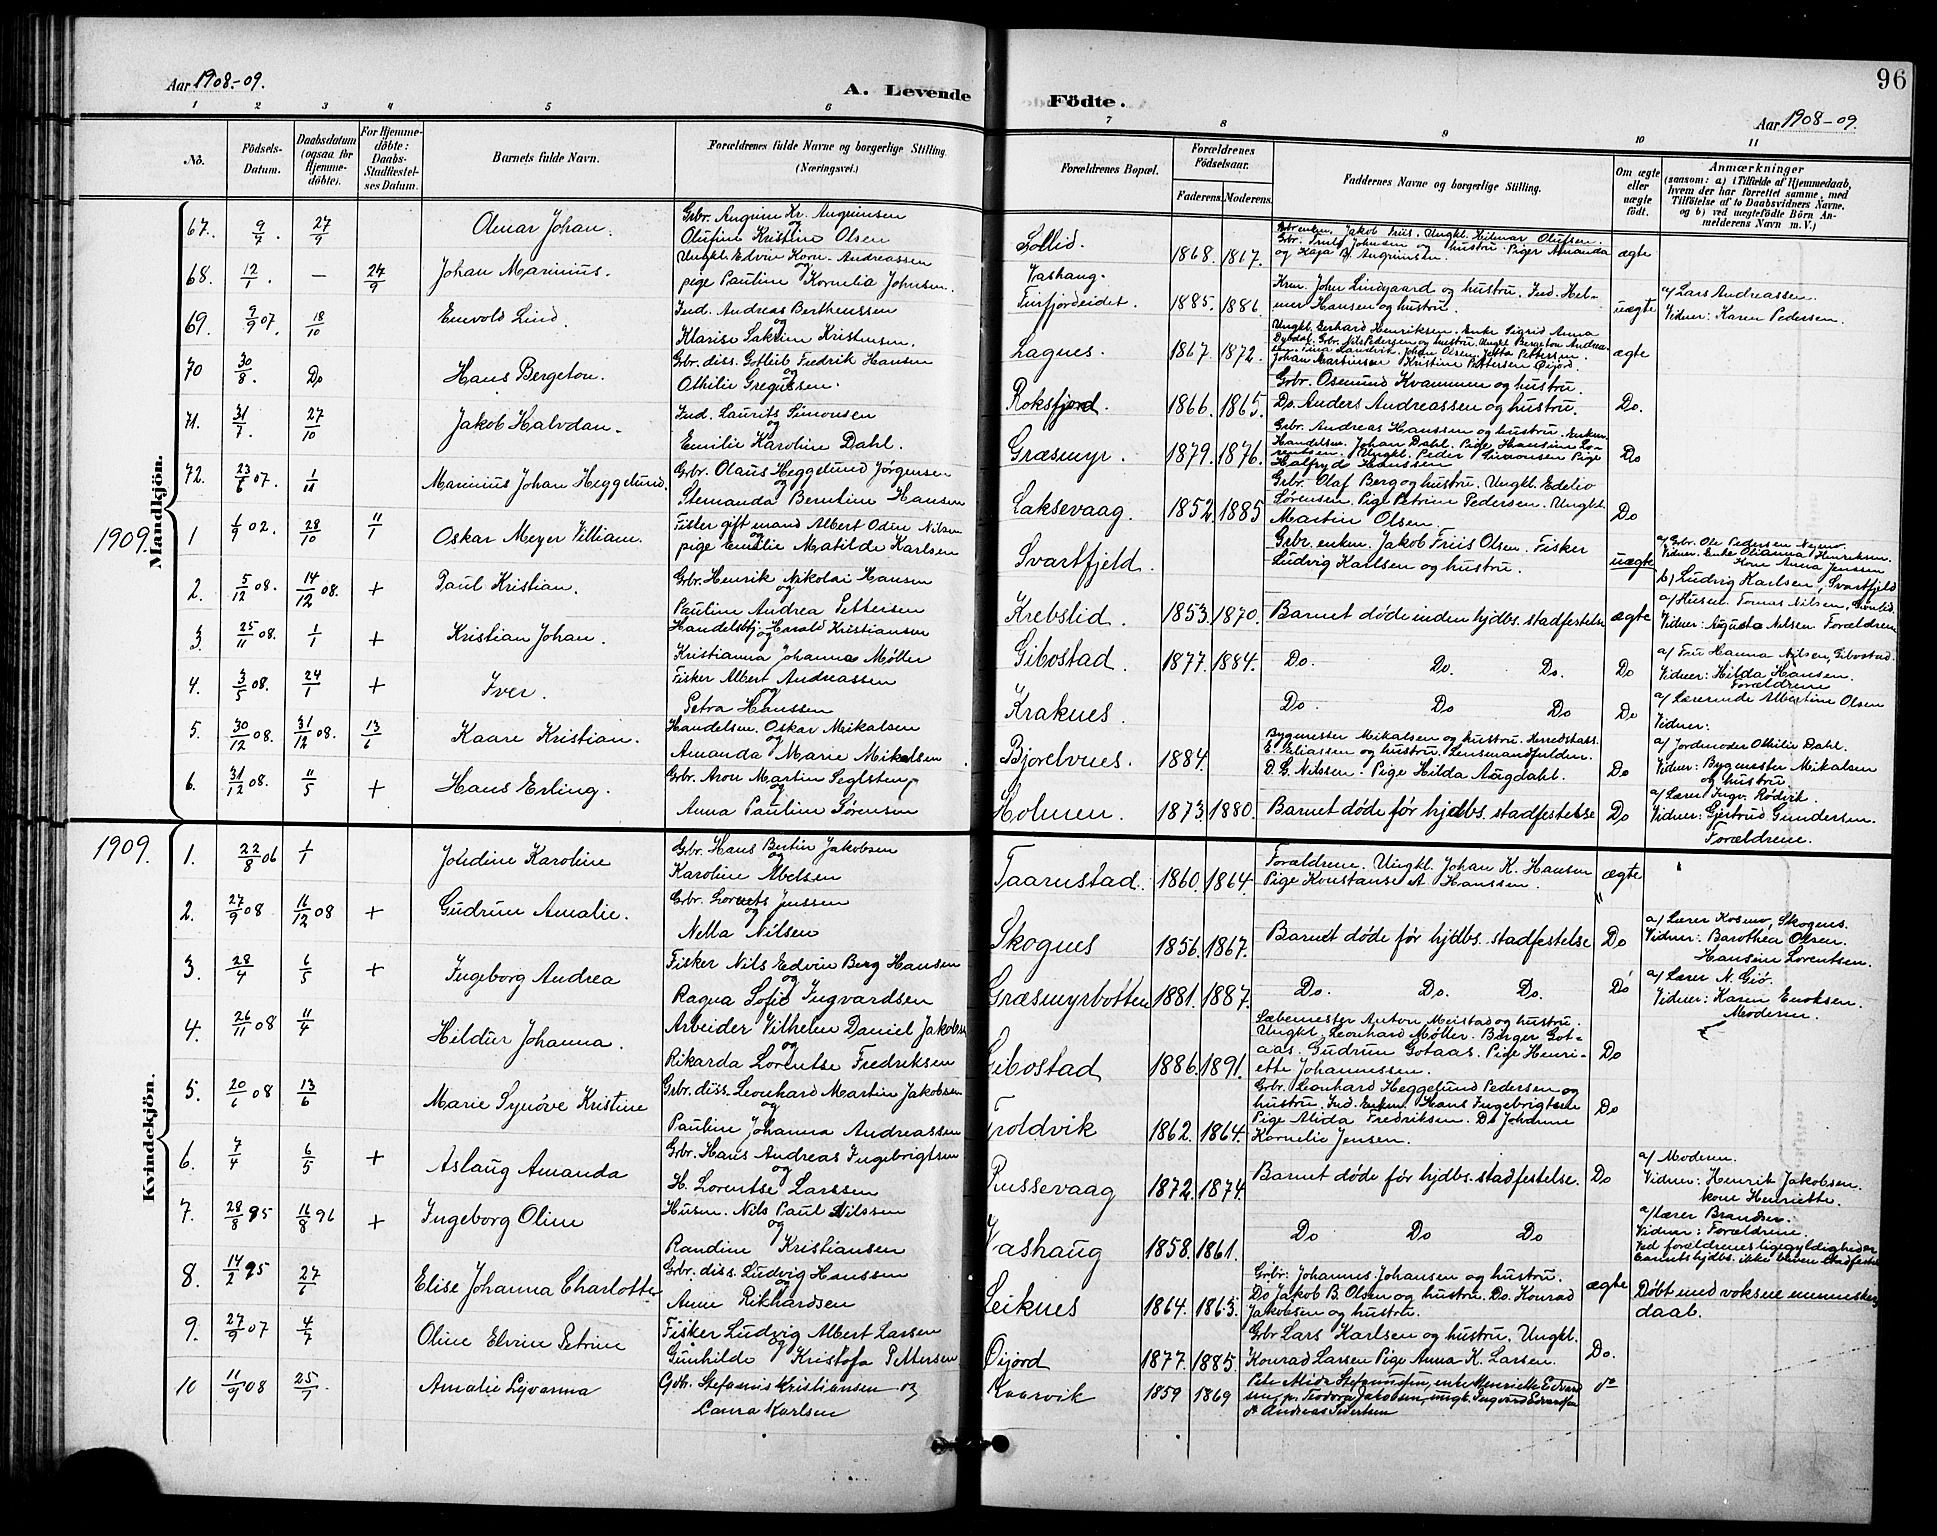 Aar 1908-09.
A. Levende
Födte.
96
Aar 1908-09.
1 2 3 4 5 6 7 8 9 10 11
No.
Födsels-
Datum.
Daabsdatum
(ogsaa for
Hjemme-
döbte).
For Hjemme-
döbte:
Daabs-
Stadfestel-
ses Datum.
Barnets fulde Navn.
Forældrenes fulde Navne og borgerlige Stilling.
(Næringsvei.)
Forældrenes Bopæl.
Forældrenes
Födselsaar.
Faderens. Moderens.
Faddernes Navne og borgerlige Stilling.
Om ægte
eller
uægte
født.
Anmærkninger
(saasom: a) i Tilfælde af Hjemmedaab,
hvem der har forrettet samme, med
Tilföielse af to Daabsvidners Navne,
og b) ved uegtefödte Börn An-
melderens Navn m. V.)
Mandkjön.
67. 9/7. 27/9 Olmar Johan. Grbr. Angrim Kr. Angrimsen
og
Olufine Kristine Olsen
Sollid. 1868. 1867. Grbr. enkem. Jakob Friis. Ungkl. Hilmar Olufsen.
og Kaja B. Angrimsen. ægte
68. 12/1 — 24/9 Johan Marinius. Ungkl. Edvin Korn. Andreassen
og
pige Pauline Kornelia Johnsen.
Vashaug.
Finfjordeidet. 1885. 1886. Krm. John Lindgaard og hustru. Ind. Hel-
mer Hansen og hustru. uægte a/ Lars Andreassen.
Vidner: Karen Pedersen.
69. 9/9 07. 18/10 Enevold Lind. Ind. Andreas Berthenssen
og
Klarise Sakrine Kristensen.
Lagnes. 1867. 1872. Ungkl. Gerhard Henriksen. Enke Sigrid Anna
Dybdal. Grbr. Nils Pedersen og hustru. Ungkl. Bergeton Andrea-
Johan Martinsen Kristine Pettersen Øijord. ægte
70 30/8. Do Hans Bergeton. Grbr. diss. Gotleib Fredrik Hansen
og
Othilie Gregussen.
Roksfjord. 1866. 1865. Grbr. Osmund Kvammen og hustru.
Do. Anders Andreassen og hustru. Do.
71. 31/7. 27/10 Jakob Halvdan. Ind. Laurits Simonsen
og
Emilie Karoline Dahl.
Græsmyr. 1879. 1876. Grbr. Andreas Hanssen og hustru. Enkem.
Handelsm. Johan Dahl. Pige Hansine Lo-
rentsen. Ungkl. Peder Simonsen Pige
Halfryd Hanssen Do
72. 23/6 07. 1/11 Marinius Johan Heggelund. Grbr. Olaus Heggelund Jörgensen
og
Stemanda Berntine Hansen
Laksevaag. 1852. 1885 Grbr. Olaf Berg og hustru. Ungkl. Edeliv
Sørensen. Pige Petrine Pedersen. Ungkl.
Martin Olsen. Do
1909.
1 1/9 02. 28/10 11/1 Oskar Meyer Villiam. Fisker gift mand Albert Odin Nilsen
og
pige Emilie Matilde Karlsen
Svartfjeld. Grbr. enkem. Jakob Friis Olsen. Fisker
Ludvig Karlsen og hustru. uægte a/ Grbr. Ole Pedersen Nymo.
Vidner: Enke Olianna Henriksen.
Kone Anna Jenssen
b/ Ludvig Karlsen, Svartfjeld
2. 5/12 08. 14/12 08. + Paul Kristian. Grbr. Henrik Nikolai Hansen
og
Pauline Andrea Pettersen
Krebslid. 1853. 1870. Barnet døde inden hjdbs. stadfestelse ægte a/ Husm. Tomas Nilsen,
Vidner: Augusta Nilsen Forældrene
3. 25/11 08. 1/1 + Kristian Johan. Handelsbtj. Harald Kristiansen
og
Kristianna Johanna Møller
Gibostad. 1877. 1884. Do. Do. Do. Do a/ Fru Hanna Nilsen, Gibostad.
Vidner: Hilda Hansen.
Forældrene
4. 3/5 08. 24/1 + Iver. Fisker Albert Andreassen
og
Petra Hanssen
Kraknes. Do. Do Do Do a/ Lærerinde Albertine Olsen
Vidner:
5. 30/12 08. 31/12 08. 13/6 Kaare Kristian. Handelsm. Oskar Mikalsen
og
Amanda Marie Mikalsen
Bjorelvnes. 1884. Bygmester Mikalsen og hustru. Herredskass.
E. Eliassen og hustru. Lensmandfuldm.
D. G. Nilssen. Pige Hilda Augdahl. Do a/ Jordmoder Othilie Dahl.
Vidner: Bygmester Mikalsen
og hustru.
6. 31/12 08. 11/5 + Hans Erling. Grbr. Aron Martin Seglsten
og
Anna Pauline Sørensen
Holmen. 1873. 1880. Barnet døde før hjdbs. stadfestelse Do a/ Lærer Ingv. Rödvik.
Vidner: Gjertrud Gundersen.
Forældrene.
Kvindekjön.
1909.
1. 22/8 06 1/1 Joudine Karoline Grbr. Hans Bertin Jakobsen
og
Karoline Abelsen
Taarnstad. 1860. 1864. Forældrene. Ungkl. Johan K. Hansen
Pige Konstanse A Hanssen. ægte
2. 27/9 08 16/12 08 + Gudrun Amalie. Grbr. Lornts Jenssen
og
Nella Nilsen
Skognes 1856. 1867. Barnet døde før hjdbs. stadfestelse Do a/ Lærer Kosmo, Skognes.
Vidner: Barothea Olsen.
Hansine Lorentsen.
3. 28/4 6/5 + Ingeborg Andrea Fisker Nils Edvin Berg Hansen
og
Ragna Sofie Ingvardsen
Græsmyrbotten 1881. 1887. Do. Do. Do. Do a/ Lærer N. Giö.
Vidner: Karen Enoksen.
Moderen.
4. 26/11 08 11/4 Hildur Johanna. Arbeider Vilhelm Daniel Jakobsen
og
Rikarda Lorentse Fredriksen
Gibostad 1886. 1891. Sæbemester Anton Meistad og hustru.
Ungkl. Leonhard Møller. Birger Got-
aas. Gudrun Gotaas. Pige Henri-
ette Johannessen. Do
5. 20/6 08 13/6 Marie Synøve Kristine Grbr. diss. Leonhard Martin Jakobsen
og
Pauline Johanna Andreassen
Foldvik 1862. 1864. Grbr. Leonhard Heggelund Pedersen og
hustru. Ind. Enkem. Hans Ingebrigtsen
Pige Alida Fredriksen. Do Johanne
Kornelie Jensen. Do
6. 7/4 6/5 + Aslaug Amanda Grbr. Hans Andreas Ingebrigtsen
og
H. Lorentse Larssen
Russevaag 1872. 1874. Barnet døde før hjdbs. stadfestelse. Do a/ Moderen.
Vidner: Henrik Jakobsen.
kone Henriette.
7. 28/8 95 16/8 96 + Ingeborg Oline Husm. Nils Paul Nilssen
og
Randine Kristiansen
Vashaug 1858. 1861. Do Do Do a/ Lærer Brandser.
Vidner: Forældrene.
Ved forældrenes ligegyldighed er
barnets hjdbs. ikke bleven stadfestet
8. 14/2 95 27/6 Elise Johanna Charlotte Grbr. diss. Ludvig Hanssen
og
Anne Rikhardsen
Leiknes 1864. 1863. Grbr: Johannes Johansen og hustru.
Do Jakob B. Olsen og hustru. Do. Konrad
Jakobsen og hustru. ægte Døbt med voksne menneskers
daab.
9. 27/9 07 4/7 Oline Elvine Petrine Fisker Ludvig Albert Larsen
og
Gunhilde Kristofa Pettersen
Øijord 1877. 1885. Grbr Lars Karlsen og hustru. Ungkl.
Konrad Larsen Pige Anna K. Larsen. Do.
10 11/9 08 25/7. Amalie Lyvanna Gdb. Stefanus Kristiansen og
Laura Karlsen
Kaarvik 1859 1869 Pike Alida Stefanussen, enke Henriette Edvard
sen, p. Teodora Jakobsen, ungk. Ingvard Edvardsen
do Andreas Pedersen do